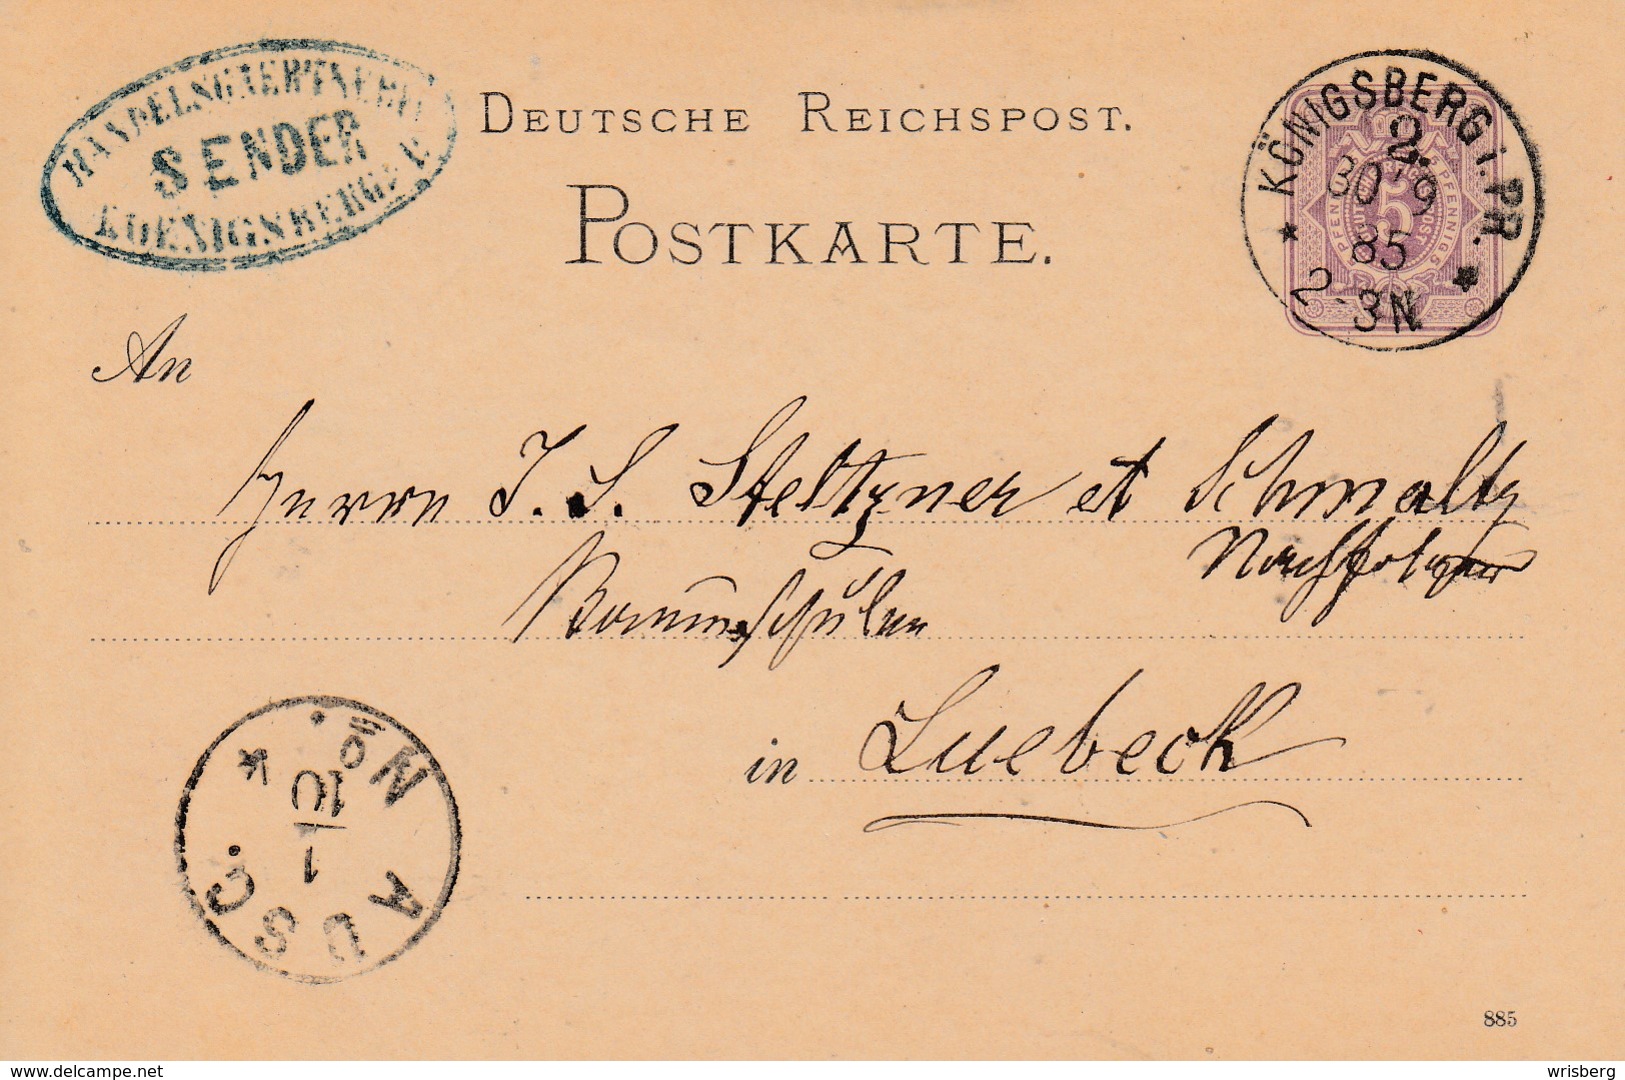 HANDELSGAERTNEREI
SENDER
KOENIGSBERG i. P.
DEUTSCHE REICHSPOST.
POSTKARTE.
KÖNIGSBERG i. PR.
2.
30 9
85
2-3N
5 PFENNIG 5
An
Herren J. S. Steltzner et Schmaltz
Nachfolger
Baumschulen
in Luebeck
10
1
885
www.delcampe.net
wrisberg